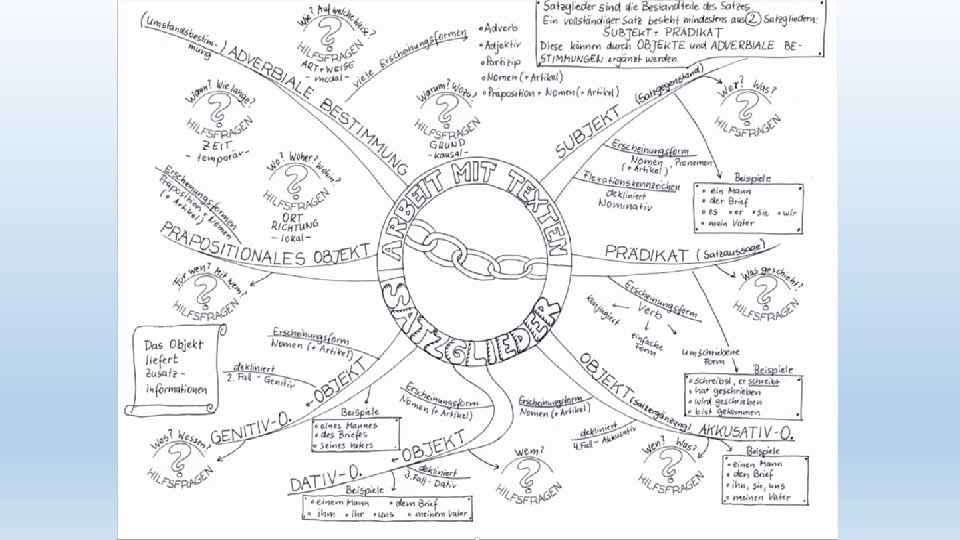 Satzglieder sind die Bestandteile des Satzes.
Ein vollständiger Satz besteht mindestens aus 2 Satzgliedern:
SUBJEKT + PRÄDIKAT
Diese können durch OBJEKTE und ADVERBIALE BE-
STIMMUNGEN ergänzt werden.
ARBEIT MIT TEXTEN
SATZGLIEDER
(Umstandsbestim-
mung)
ADVERBIALE BESTIMMUNG
Wie? Auf welche Weise?
?
HILFSFRAGEN
ART + WEISE
- modal -
viele Erscheinungsformen
• Adverb
• Adjektiv
• Partizip
• Nomen (+ Artikel)
• Präposition + Nomen (+ Artikel)
Wann? Wie lange?
?
HILFSFRAGEN
ZEIT
- temporär -
Warum? Wozu?
?
HILFSFRAGEN
GRUND
- kausal -
Wo? Woher? Wohin?
?
HILFSFRAGEN
ORT
RICHTUNG
- lokal -
SUBJEKT
(Satzgegenstand)
Wer? Was?
?
HILFSFRAGEN
Erscheinungsform
Nomen, Pronomen
(+ Artikel)
Flexionskennzeichen
dekliniert
Nominativ
Beispiele
• ein Mann
• der Brief
• es • er • sie • wir
• mein Vater
PRÄDIKAT (Satzaussage)
Was geschieht?
?
HILFSFRAGEN
Erscheinungsform
Verb
konjugiert
einfache
Form
umschriebene
Form
Beispiele
• schreibst, er schreibt
• hat geschrieben
• wird geschrieben
• bist gekommen
OBJEKT
(Satzergänzung)
AKKUSATIV-O.
Erscheinungsform
Nomen (+ Artikel)
dekliniert
4. Fall - Akkusativ
Wen? Was?
?
HILFSFRAGEN
Beispiele
• einen Mann
• den Brief
• ihn, sie, uns
• meinen Vater
OBJEKT
DATIV-O.
Erscheinungsform
Nomen (+ Artikel)
dekliniert
3. Fall - Dativ
Wem?
?
HILFSFRAGEN
Beispiele
• einem Mann • dem Brief
• ihm • ihr • uns • meinem Vater
OBJEKT
GENITIV-O.
Erscheinungsform
Nomen (+ Artikel)
dekliniert
2. Fall - Genitiv
Was? Wessen?
?
HILFSFRAGEN
Beispiele
• eines Mannes
• des Briefes
• seines Vaters
PRÄPOSITIONALES OBJEKT
Erscheinungsformen
Präposition + Nomen
(+ Artikel)
Für wen? Mit wem?
?
HILFSFRAGEN
Das Objekt
liefert
Zusatz-
informationen